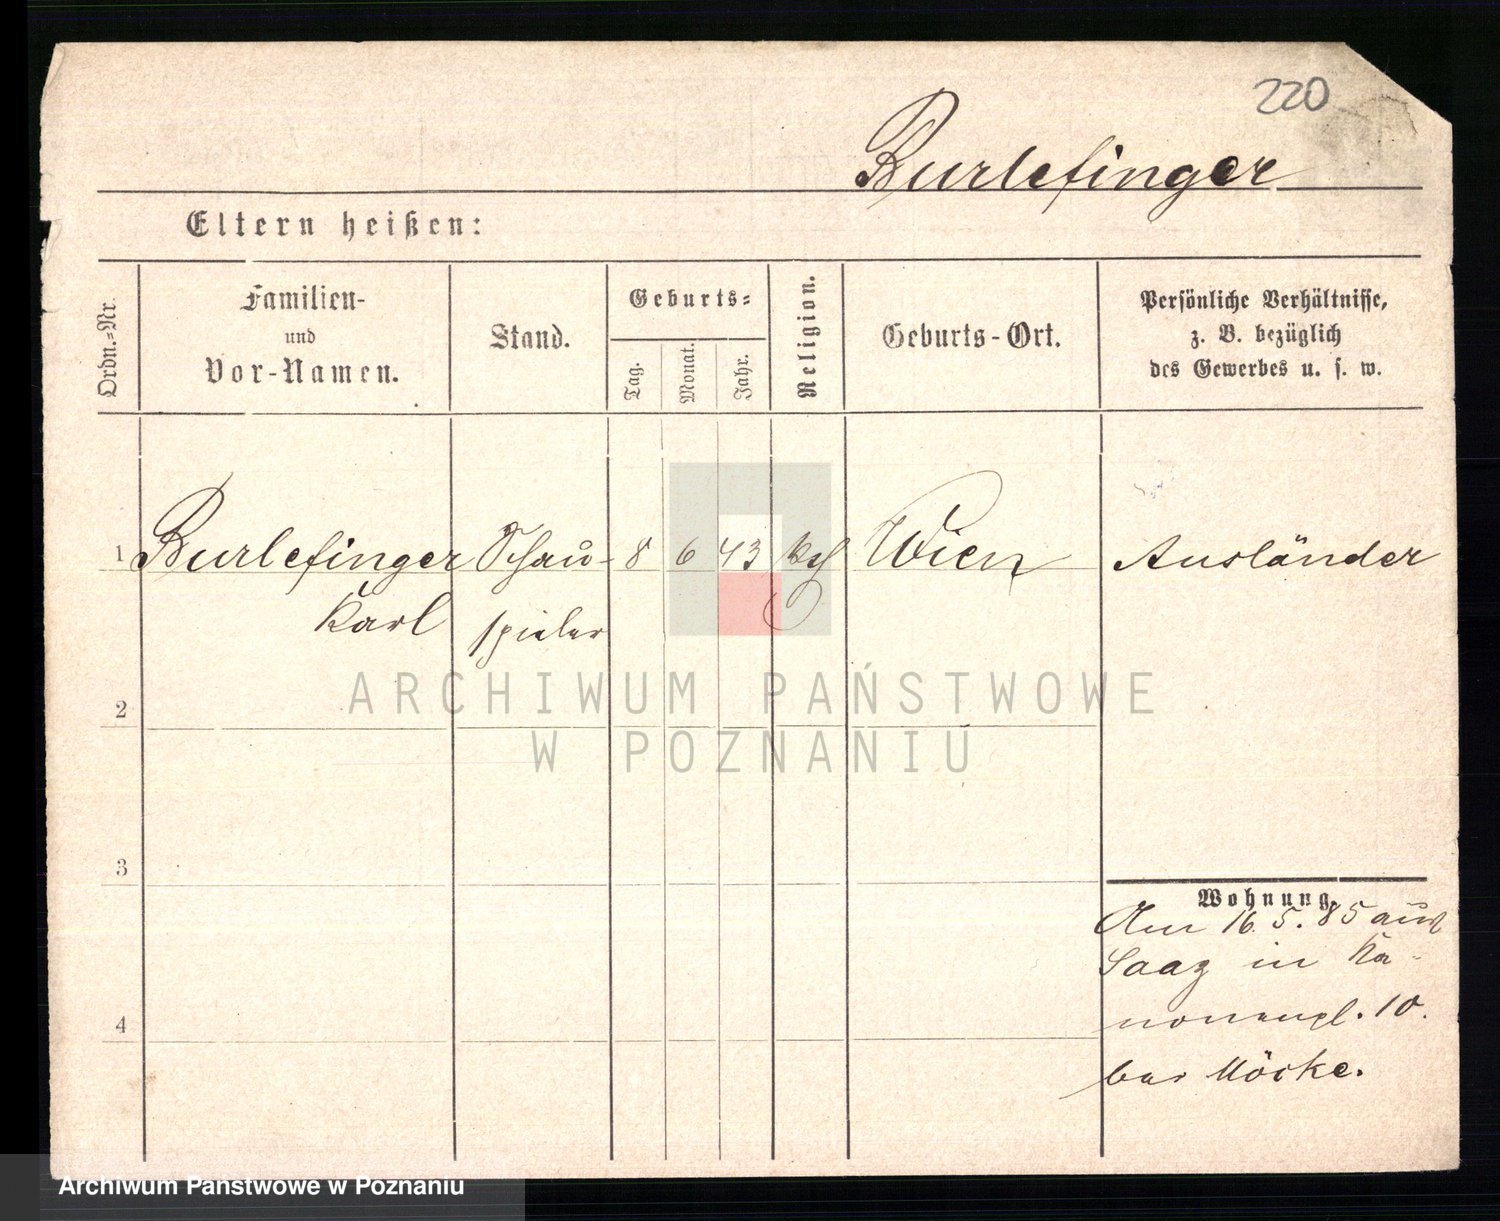 220
Burlefinger
Eltern heißen:
Ordn.-Nr.
Familien-
und
Vor-Namen.
Stand.
Geburts-
Tag.
Monat.
Jahr.
Religion.
Geburts-Ort.
Persönliche Verhältnisse,
z. B. bezüglich
des Gewerbes u. s. w.
1 Burlefinger Schau- 8 6 43 kath Wien Ausländer
Karl spieler
ARCHIWUM PAŃSTWOWE
2
W POZNANIU
3
Wohnung.
Am 16. 5. 85 aus
Saaz in Ka-
4
nonenpl. 10.
bei Möcke.
Archiwum Państwowe w Poznaniu